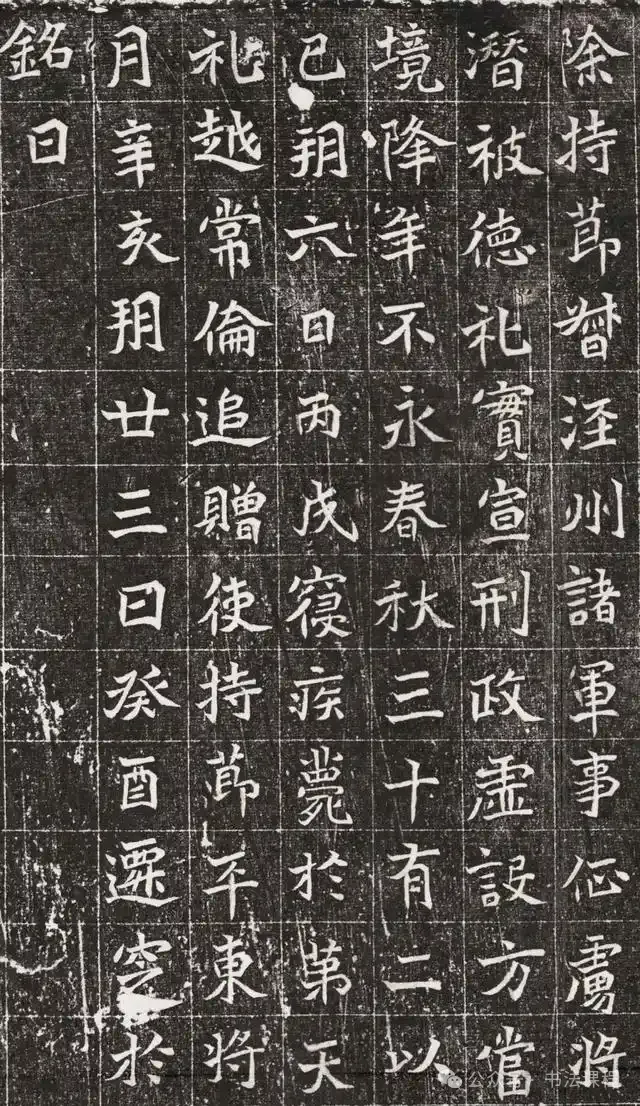 除持節督涇州諸軍事征虜將
潛被德礼實宣刑政虛設方當
境降年不永春秋三十有二以
已朔六日丙戌寢疾薨於第天
礼越常倫追贈使持節平東將
月辛亥朔廿三日癸酉遷窆於
銘曰
公众号·书法课程